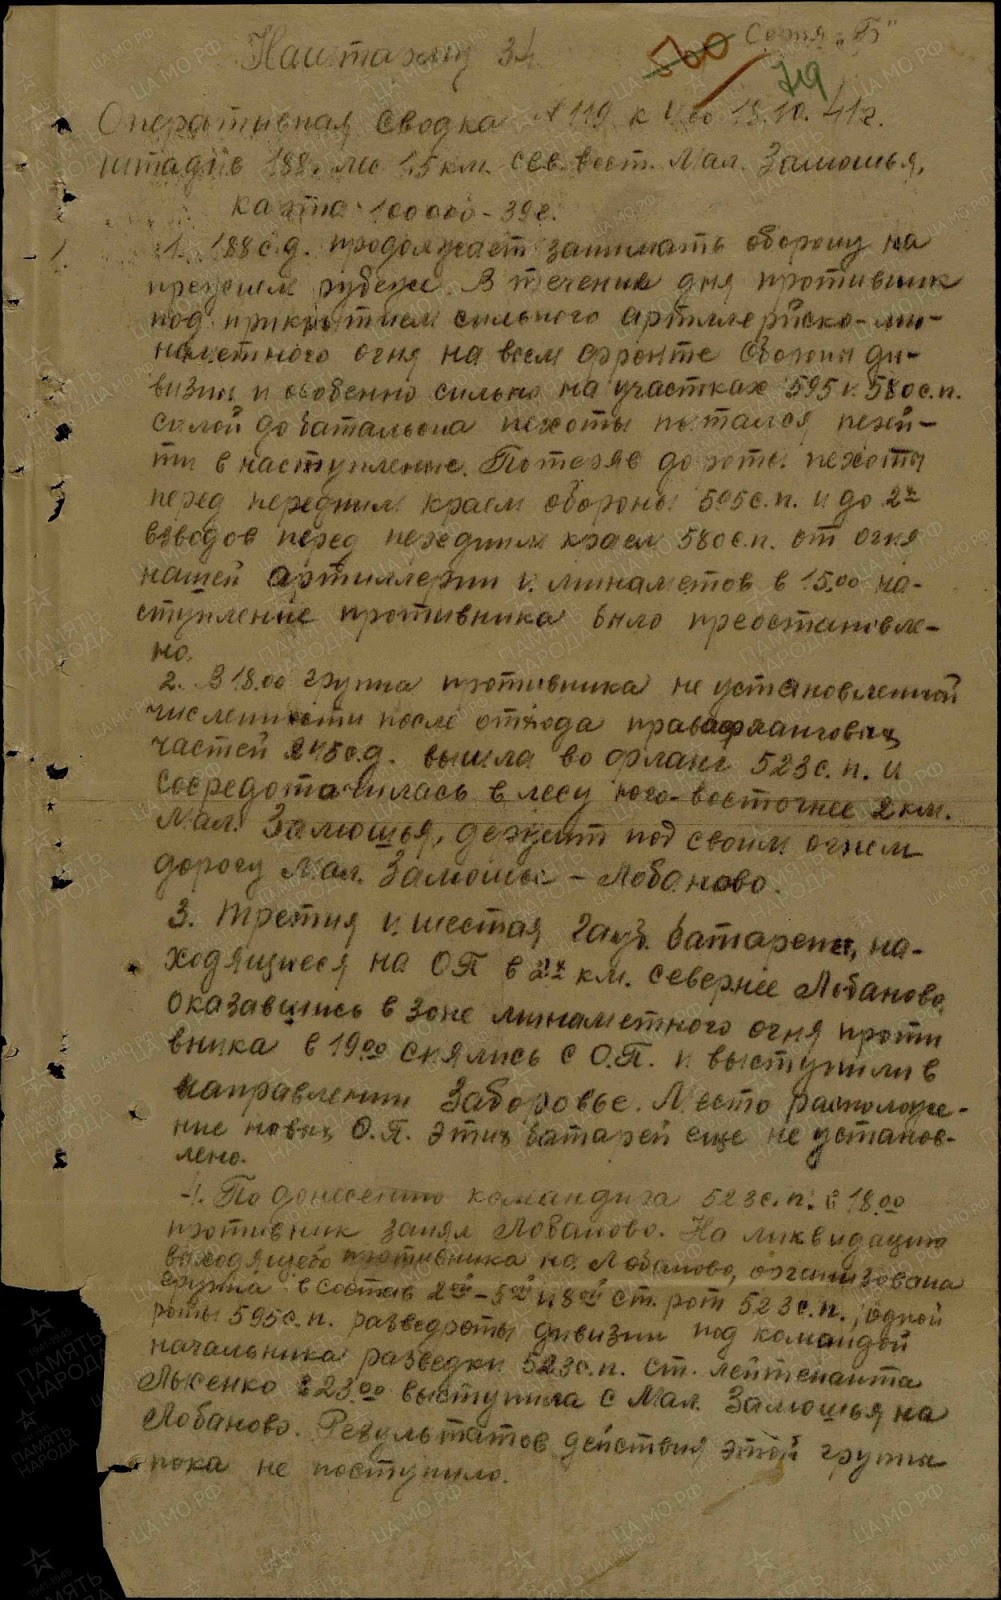 Серия "Б"
Наштарму 34
500
719
Оперативная сводка №119 к 18.10.41г.
штадив 188. лес 1,5 км. сев. вост. Мал. Замошья,
карта 100000-39г.
1. 188 с.д. продолжает занимать оборону на
прежнем рубеже. В течении дня противник
под прикрытием сильного артиллерийско-ми-
наметного огня на всем фронте обороны ди-
визии и особенно сильно на участках 595 и 580 с.п.
силой до батальона пехоты пытался перей-
ти в наступление. Потеряв до роты пехоты
перед передним краем обороны 595 с.п. и до 2х
взводов перед передним краем 580 с.п. от огня
нашей артиллерии и минаметов в 15.00 на-
ступление противника было преостановле-
но.
2. В 18.00 группа противника не установленной
численности после отхода правафланговых
частей 245 с.д. вышла во фланг 523 с.п. и
сосредоточилась в лесу юго-восточнее 2 км.
Мал. Замошья, держит под своим огнем
дорогу Мал. Замошье - Лобаново.
3. Третия и шестая гауб. батареи, на-
ходящиеся на ОП в 2х км. севернее Лобаново,
оказавшись в зоне минаметного огня проти
вника в 19.00 снялись с О.П. и выступили в
направлении Заборовье. Место расположе-
ние новых О.П. этих батарей еще не установ-
лено.
4. По донесению командира 523 с.п. в 18.00
противник занял Лобаново. На ликвидацию
выходящего противника на Лобаново, организована
группа в состав 2ой - 5ой и 8ой ст. рот 523 с.п., одной
роты 595 с.п. разведроты дивизии под командой
начальника разведки 523 с.п. ст. лейтенанта
Лысенко в 23.00 выступила с Мал. Замошья на
Лобаново. Результатов действия этой группы
пока не поступило.